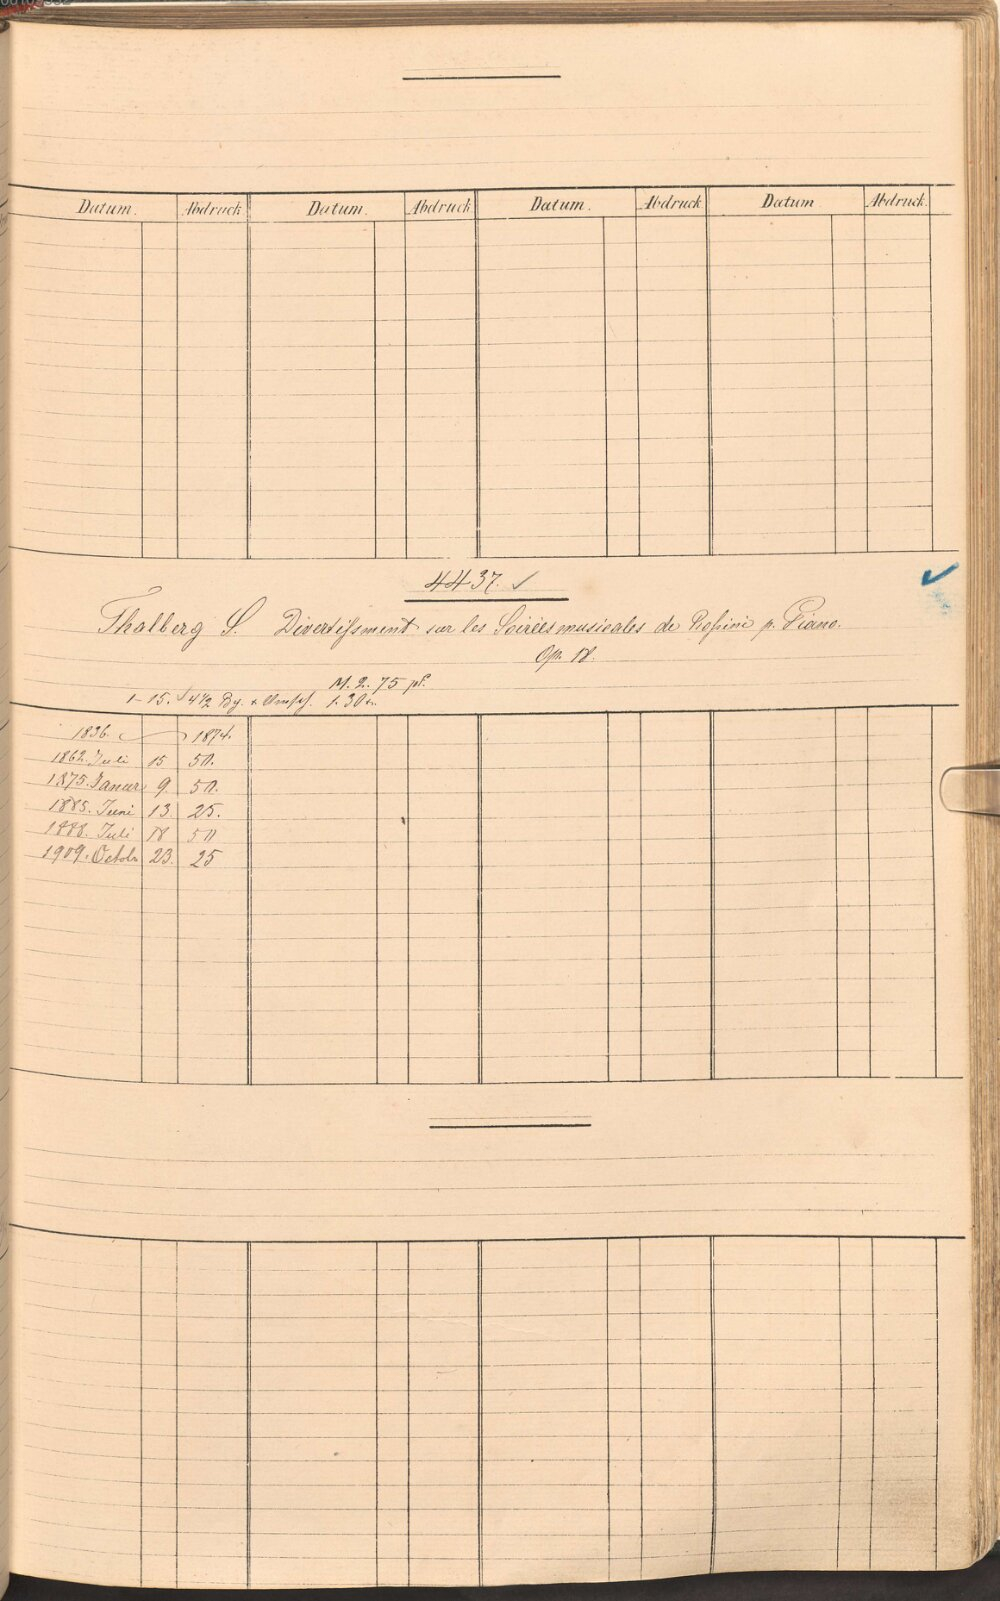 Datum. Abdruck Datum. Abdruck Datum. Abdruck Datum Abdruck.
4437. ✓ ✓
Thalberg S. Divertissment sur les Soirées musicales de Rossini p. Piano.
Op. 18.
M. 2. 75 pf.
1-15. ✓ 4 1/2 Bg. + Umschl.
1836. 1874.
1862. Juli 15 50.
1875. Januar 9. 50.
1885. Juni 13. 25.
1888. Juli 18 50
1909. Octob 23. 25